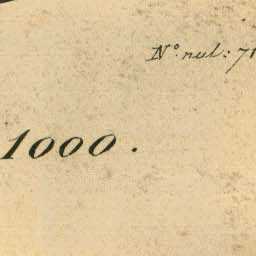 N.º nul: 71
1000.